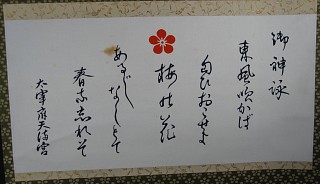 御神詠
東風吹かば
匂ひおこせよ
梅の花
あるじなしとて
春な忘れそ
太宰府天満宮